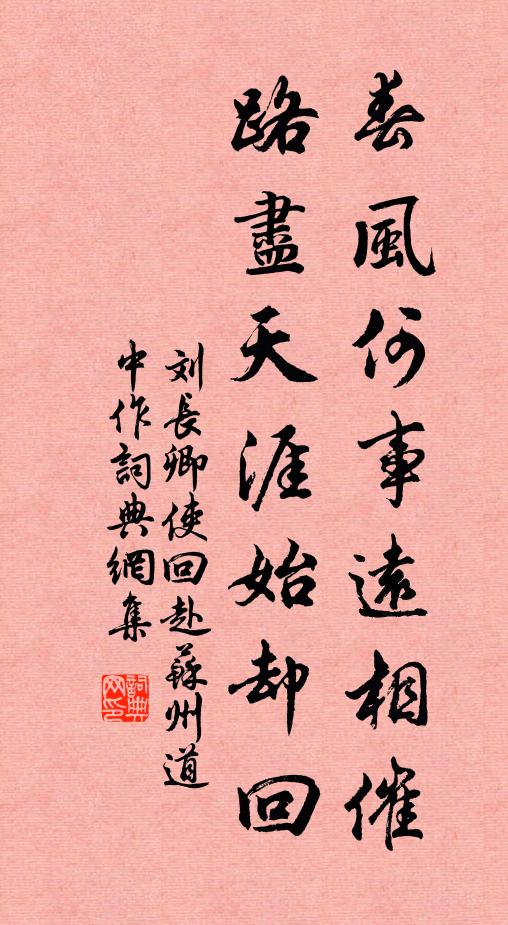 春風何事遠相催
路盡天涯始却回
刘長卿使回赴蘇州道
中作詞典網集
詞典
网印